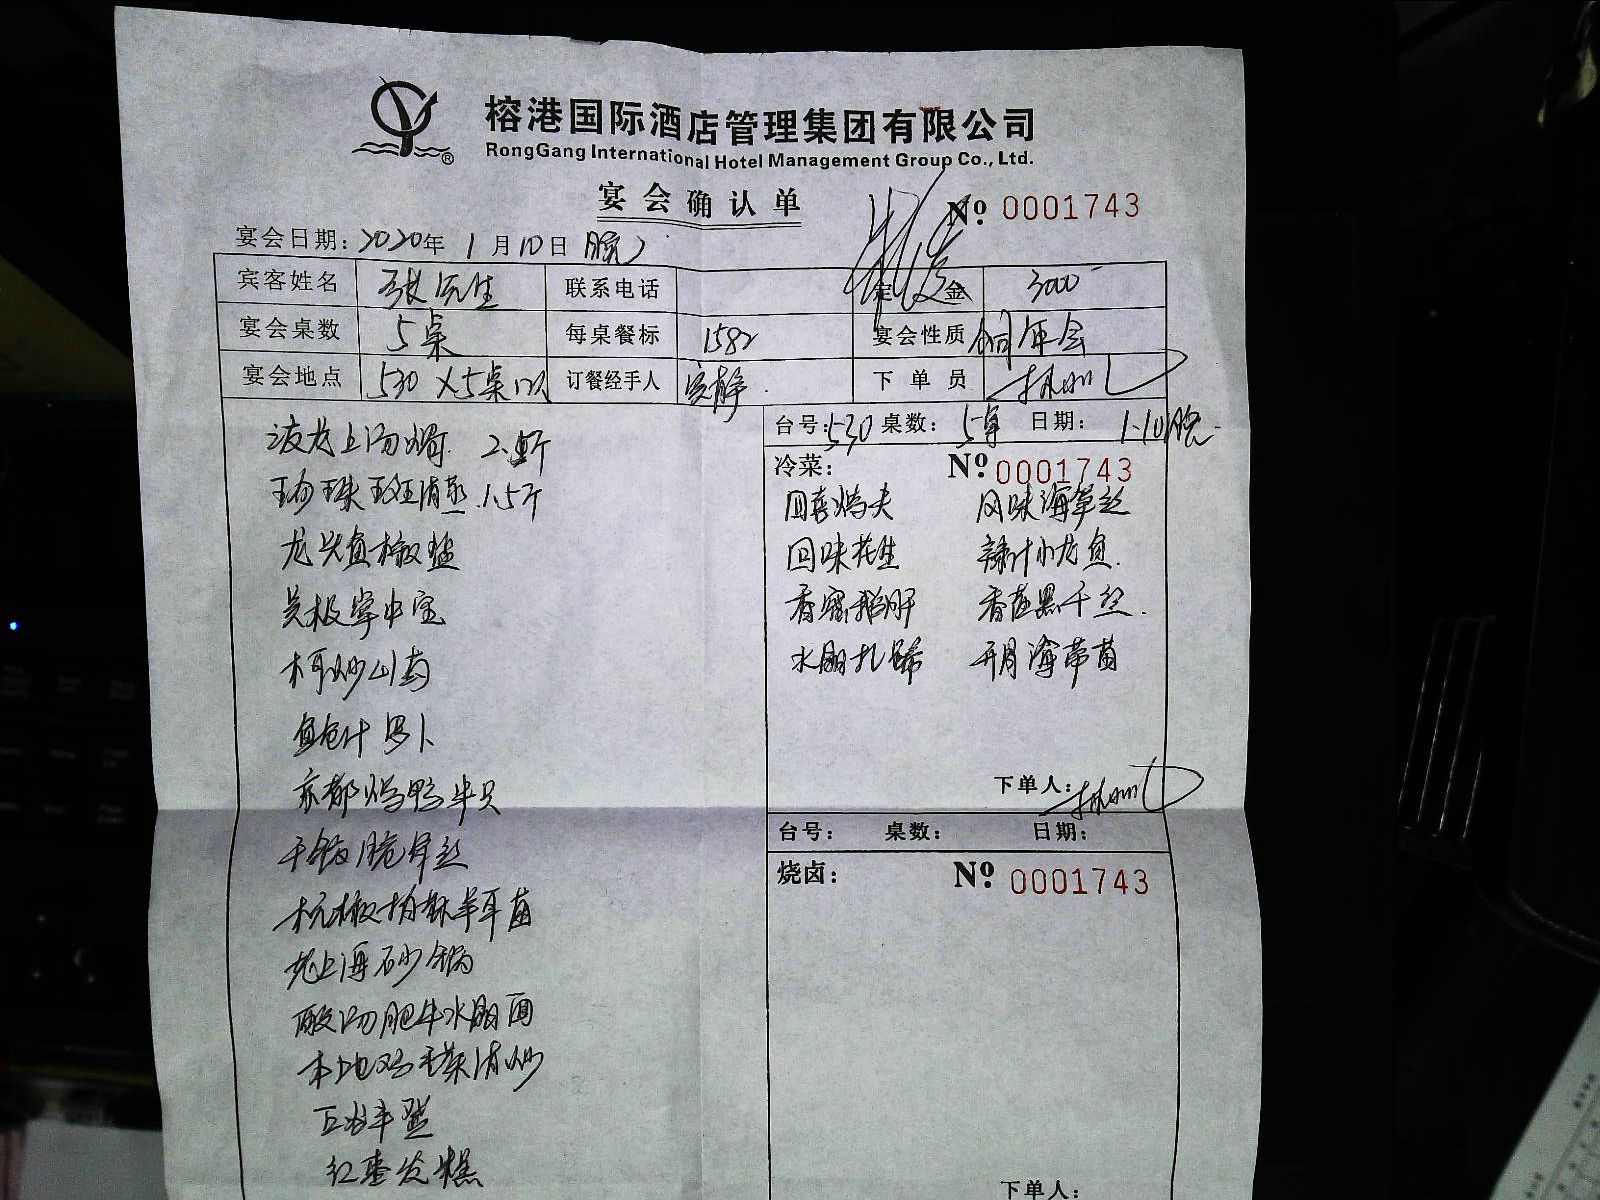 榕港国际酒店管理集团有限公司
RongGang International Hotel Management Group Co., Ltd.
宴会确认单
№ 0001743
宴会日期：2020年 1月10日 晚
宾客姓名 张先生 联系电话 定金 3000
宴会桌数 5桌 每桌餐标 1582 宴会性质 公司年会
宴会地点 530 X5桌 订餐经手人 静 下单员
台号：530 桌数：5桌 日期：1.10晚
波龙上汤焗 2.
珍珠斑清蒸 1.5斤
龙头鱼椒盐
掌中宝
木耳炒山药
鲍汁萝卜
京都鸡鸭半只
干锅脆笋丝
杭椒羊耳菌
老上海砂锅
酸汤肥牛水晶面
本地鸡毛菜清炒
红枣发糕
冷菜：
№ 0001743
四喜烤夫 风味海草丝
回味花生 辣汁小龙鱼
香糟鹅肝 香菜黑千丝
水晶扎蹄 开胃海带苗
下单人：
台号： 桌数： 日期：
烧卤：
№ 0001743
下单人：